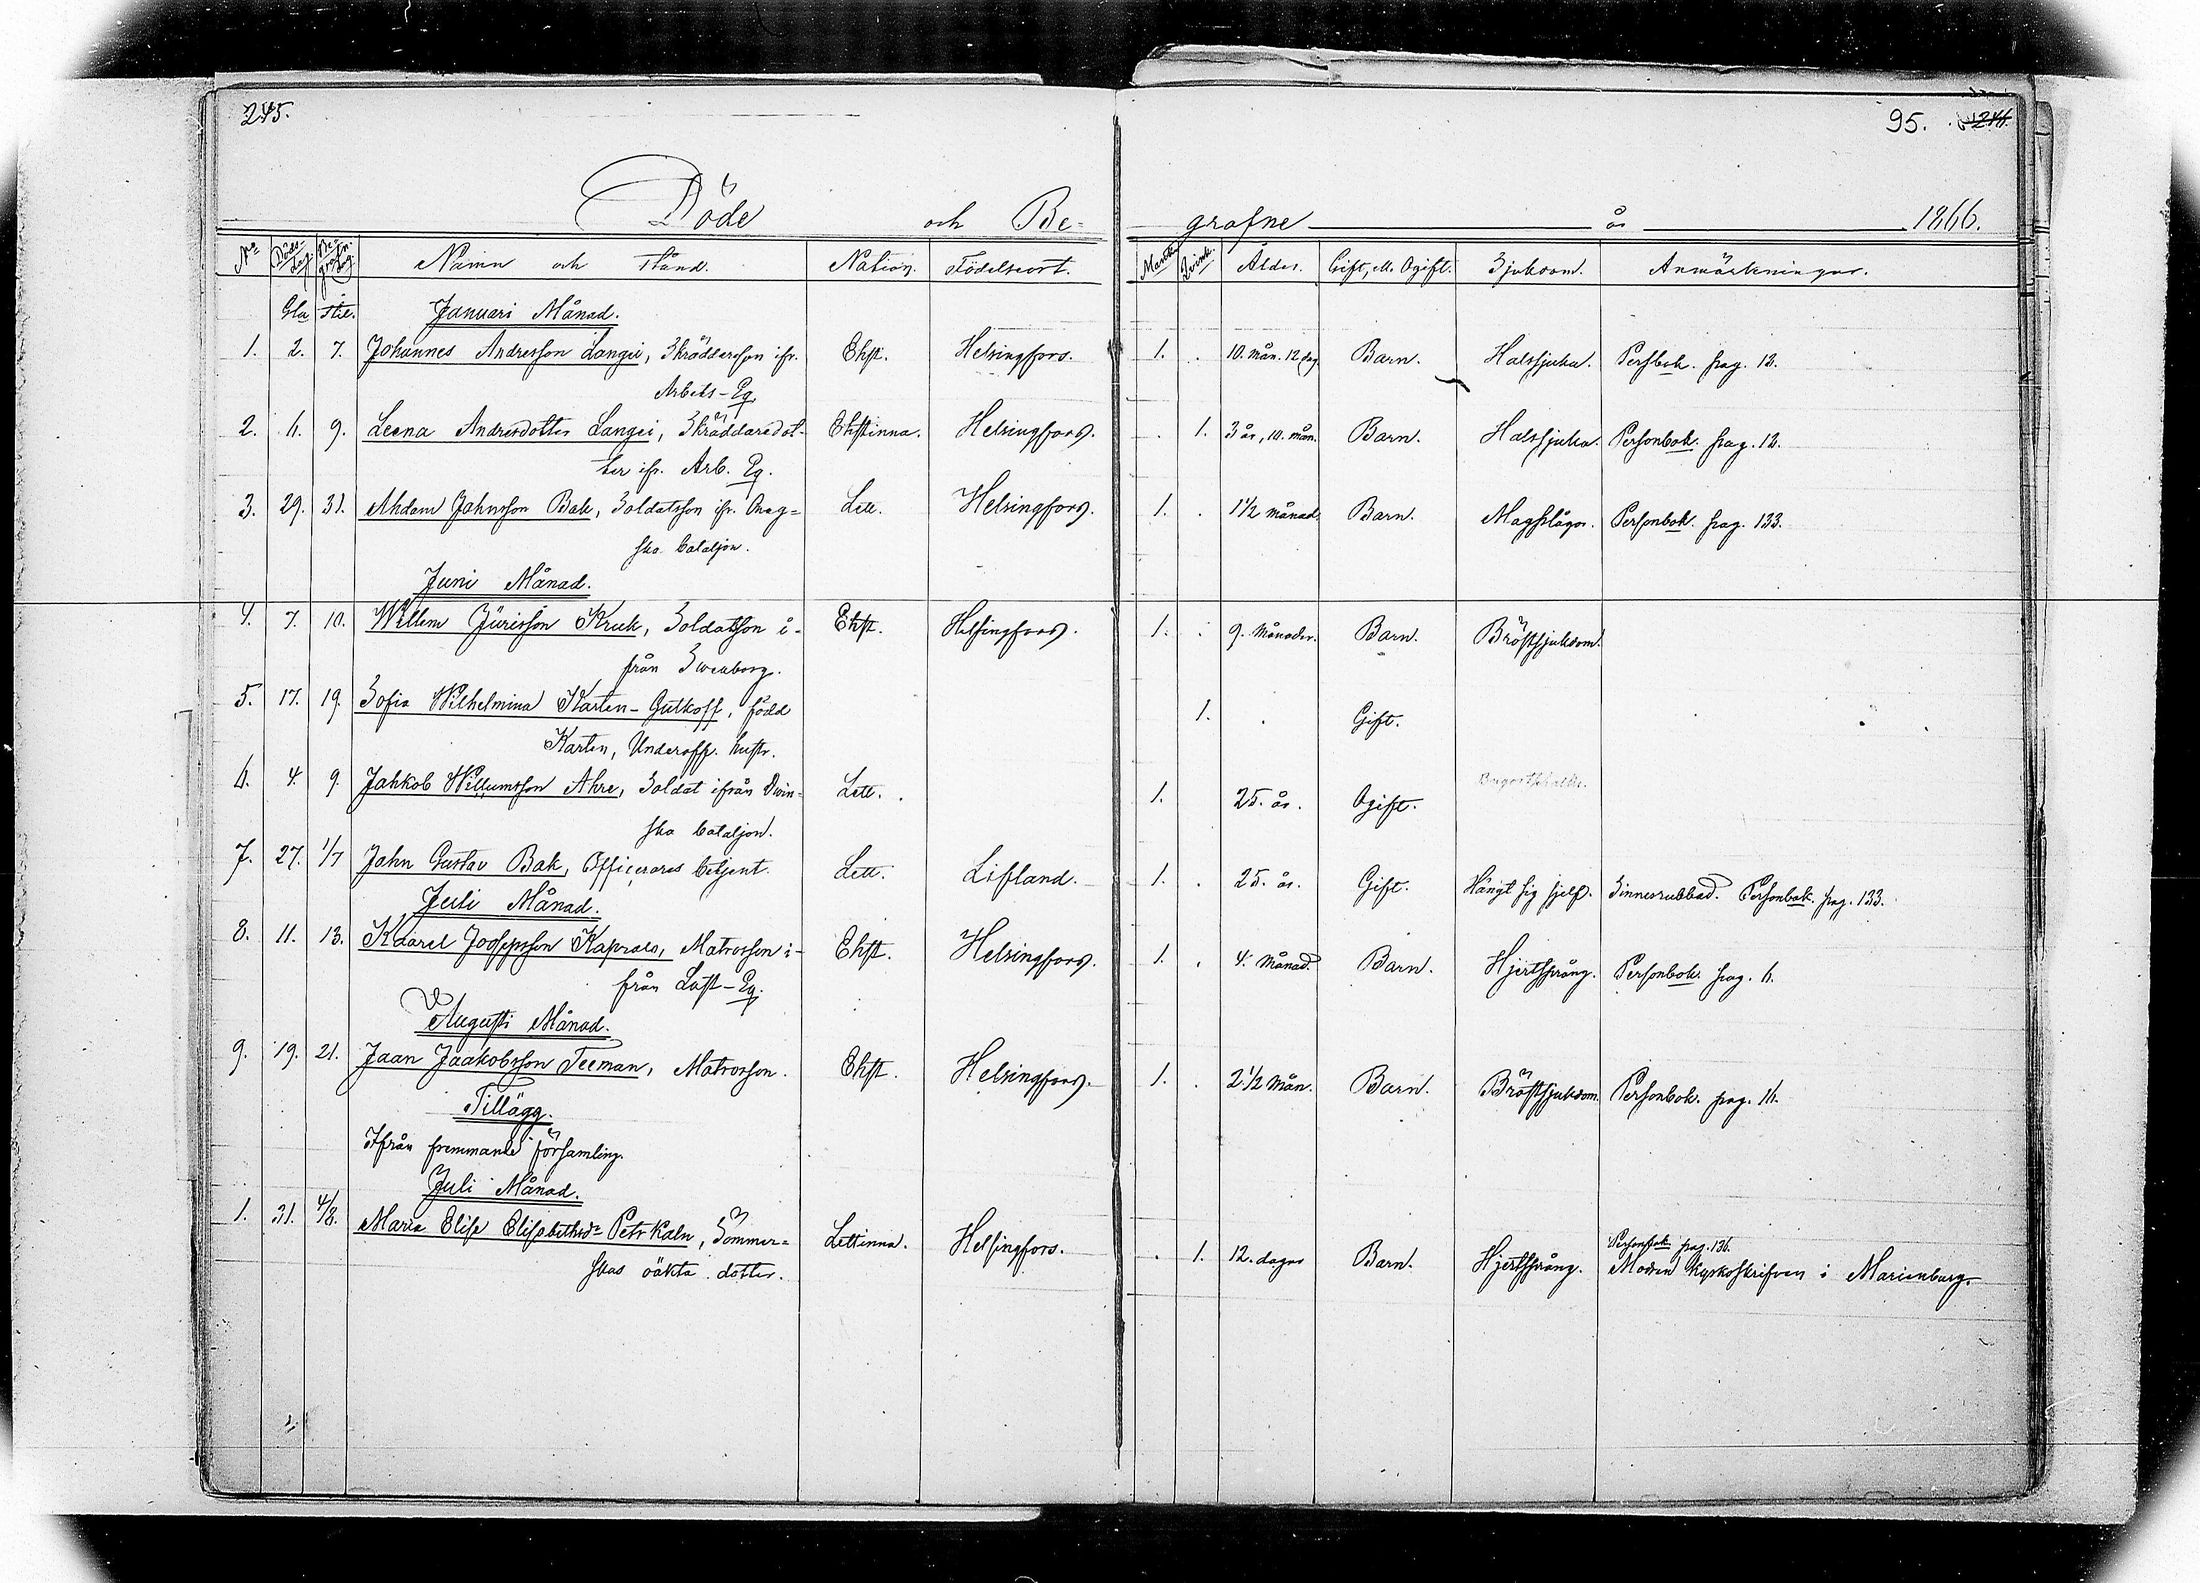 245.
95. 246.
Döde och Be= grafne år 1866.
No Döds-dag Be-grafn. dag Namn och stånd. Nation. Födelseort. Mank. Qvink. Ålder. Gift, el. Ogift. Sjukdom. Anmärkningar.
Gla stil. Januari Månad.
1. 2. 7. Johannes Andresson Langei, Skräddarsson ifr. Ehst. Helsingfors. 1. . 10. mån. 12 dag. Barn. Halssjuka. Persbok. pag. 12.
Arbets-Eq.
2. 6. 9. Leena Andresdotter Langei, Skräddaredot- Ehstinna. Helsingfors. . 1. 3 år, 10. mån. Barn. Halssjuka. Personbok. pag. 12.
ter ifr. Arb. Eq.
3. 29. 31. Ahdam Jahnsson Bak, Soldatsson ifr. Oneg= Lett. Helsingfors. 1. . 1 1/2 månad. Barn. Magplågor. Personbok. pag. 133.
ska bataljon.
Juni Månad.
4. 7. 10. Willem Jürisson Kruk, Soldatsson i- Ehst. Helsingfors. 1. . 9. Månader. Barn. Bröstsjukdom.
från Sweaborg.
5. 17. 19. Sofia Wilhelmina Karten-Gutkoff, född 1. . Gift.
Karten, Underoff. hustr.
6. 4. 9. Jahkob Willumsson Ahre, Soldat ifrån Dwin- Lett. 1. 25. år. Ogift.
ska bataljon.
7. 27. 1/7 Jahn Gustav Bak, Officerares betjent. Lett. Lifland. 1. . 25. år. Gift. Hängt sig sjelf. Sinnesrubbad. Personbok. pag. 133.
Juli Månad.
8. 11. 13. Kaarel Joosepsson Kaprals, Matrosson i- Ehst. Helsingfors. 1. . 4. Månad. Barn. Hjertsprång. Personbok. pag. 6.
från Last-Eq.
Augusti Månad.
9. 19. 21. Jaan Jaakobsson Teeman, Matrosson. Ehst. Helsingfors. 1. . 2 1/2 Mån. Barn. Bröstsjukdom. Personbok. pag. 16.
Tillägg.
Ifrån fremmande församling.
Juli Månad.
1. 31. 4/8. Maria Elise Elisabethsd= Petrkaln, Sömmer= Lettinna. Helsingfors. . 1. 12. dagar Barn. Hjertsprång. Personbok pag. 136.
skas oäkta dotter. Modren kyrkoskrifven i Marienburg.